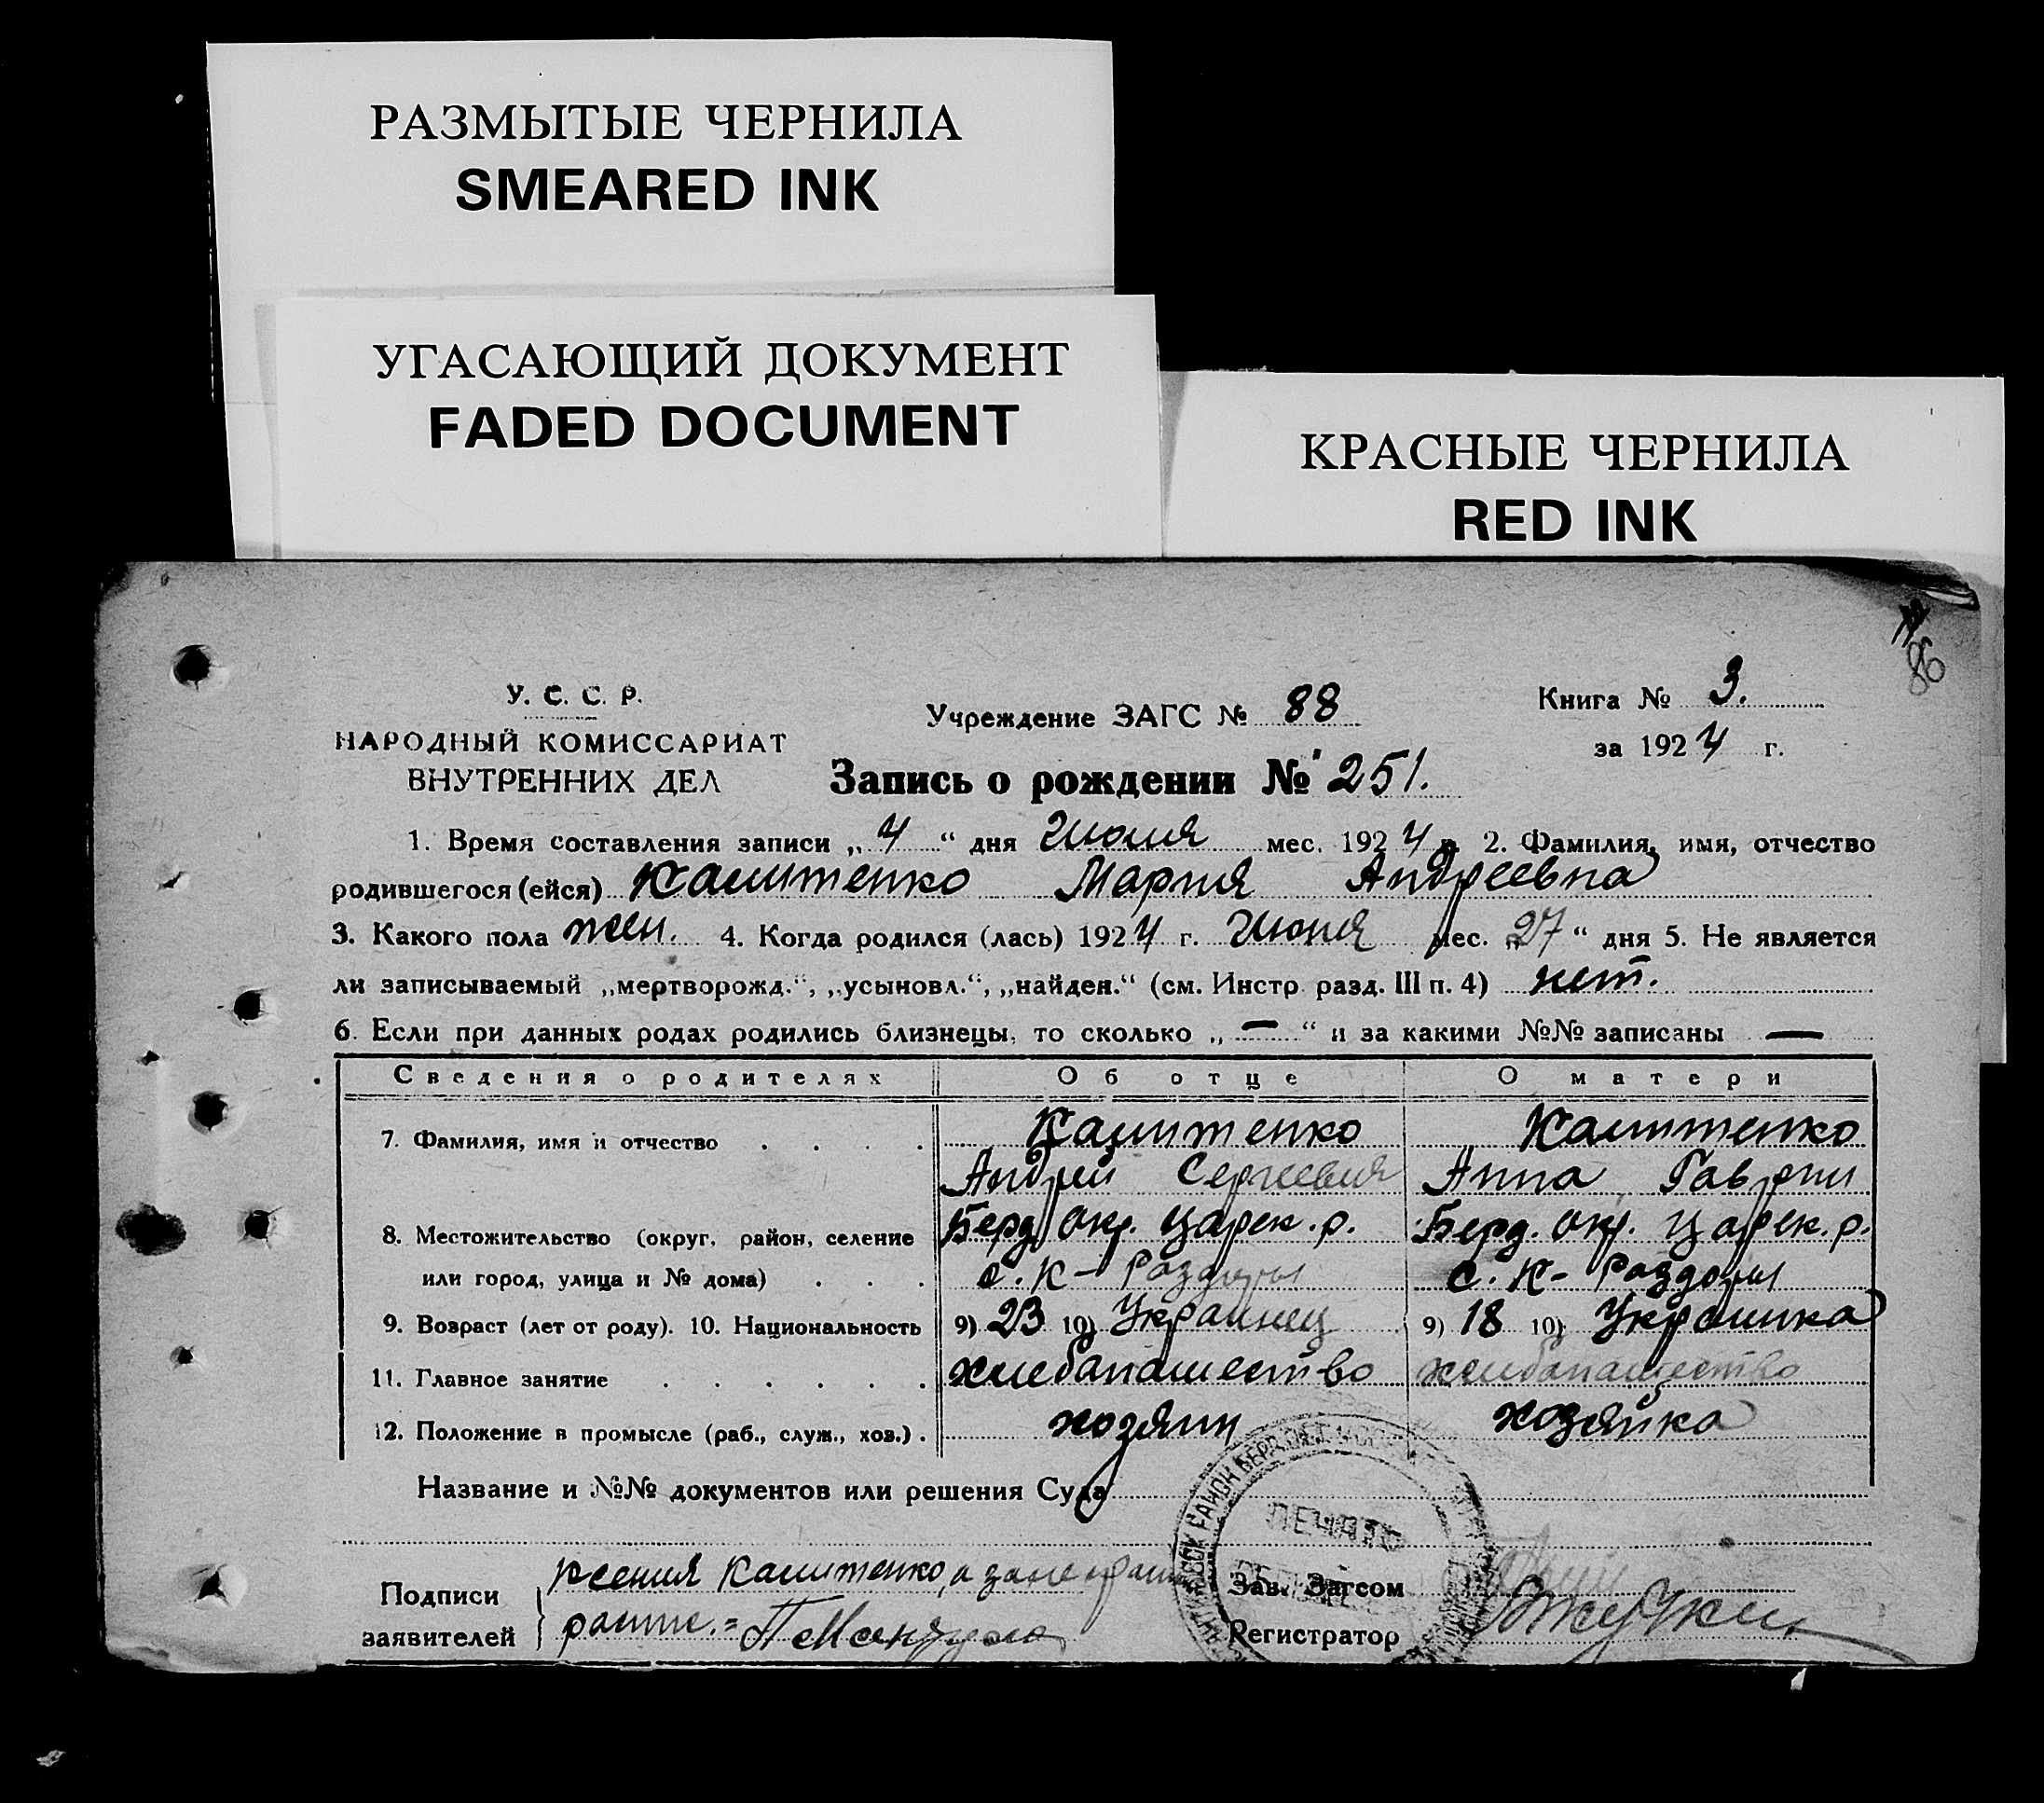 РАЗМЫТЫЕ ЧЕРНИЛА
SMEARED INK
УГАСАЮЩИЙ ДОКУМЕНТ
FADED DOCUMENT
КРАСНЫЕ ЧЕРНИЛА
RED INK
86
У. С. С. Р.
НАРОДНЫЙ КОМИССАРИАТ
ВНУТРЕННИХ ДЕЛ
Учреждение ЗАГС № 88
Книга № 3.
за 1924 г.
Запись о рождении № 251.
1. Время составления записи „4“ дня Июля мес. 1924 г. 2. Фамилия, имя, отчество
родившегося (ейся) Калитенко Мария Андреевна
3. Какого пола жен. 4. Когда родился (лась) 1924 г. Июня мес. „27“ дня 5. Не является
ли записываемый „мертворожд.“, „усыновл.“, „найден.“ (см. Инстр. разд. III п. 4) нет.
6. Если при данных родах родились близнецы, то сколько „—“ и за какими №№ записаны —
Сведения о родителях Об отце О матери
7. Фамилия, имя и отчество . . . . Калитенко Калитенко
Андрей Сергеевич Анна Гаврил
8. Местожительство (округ, район, селение Берд. окр. Царек. р. Берд. окр. Царек. р.
или город, улица и № дома) . . . с. К- Раздоры с. К- Раздоры
9. Возраст (лет от роду). 10. Национальность 9) 23 10) Украинец 9) 18 10) Украинка
11. Главное занятие . . . . . . хлебопашество хлебопашество
12. Положение в промысле (раб., служ., хоз.) . хозяин хозяйка
Название и №№ документов или решения Суда
ПЕЧАТЬ
Подписи
заявителей
Ксения Калитенко, а за
Зав. Загсом
Регистратор